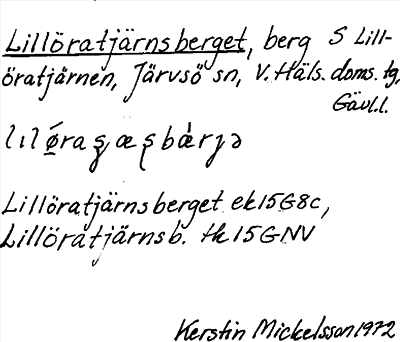 Lillöratjärnsberget, berg S Lill-
öratjärnen, Järvsö sn, V. Häls. doms. tg,
Gävl.l.
Lillöratjärnsberget ek15G8c,
Lillöratjärnsb. tk 15GNV
Kerstin Mickelsson 1972